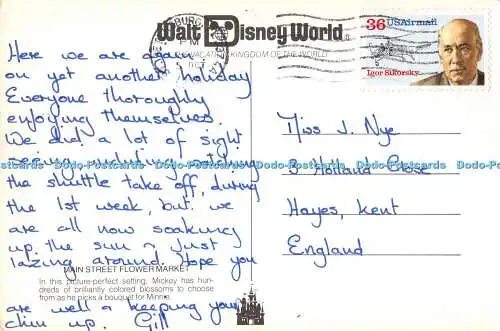 Walt Disney World
VACATION KINGDOM OF THE WORLD
36 USAirmail
Igor Sikorsky
Here we are again
on yet another holiday
Everyone thoroughly
enjoying themselves.
We did a lot of sight
seeing, including watching
the shuttle take off, during
the 1st week, but we
are all now soaking
up the sun & just
lazing around. Hope you
are well & keeping your
chin up. Gill
Miss J. Nye
3 Holland Close
Hayes, Kent
England
MAIN STREET FLOWER MARKET
In this picture-perfect setting, Mickey has hun-
dreds of brilliantly colored blossoms to choose
from as he picks a bouquet for Minnie.
Dodo-Postcards Dodo-Postcards Dodo-Postcards Dodo-Postcards Dodo-Postcards Dodo-Postcards